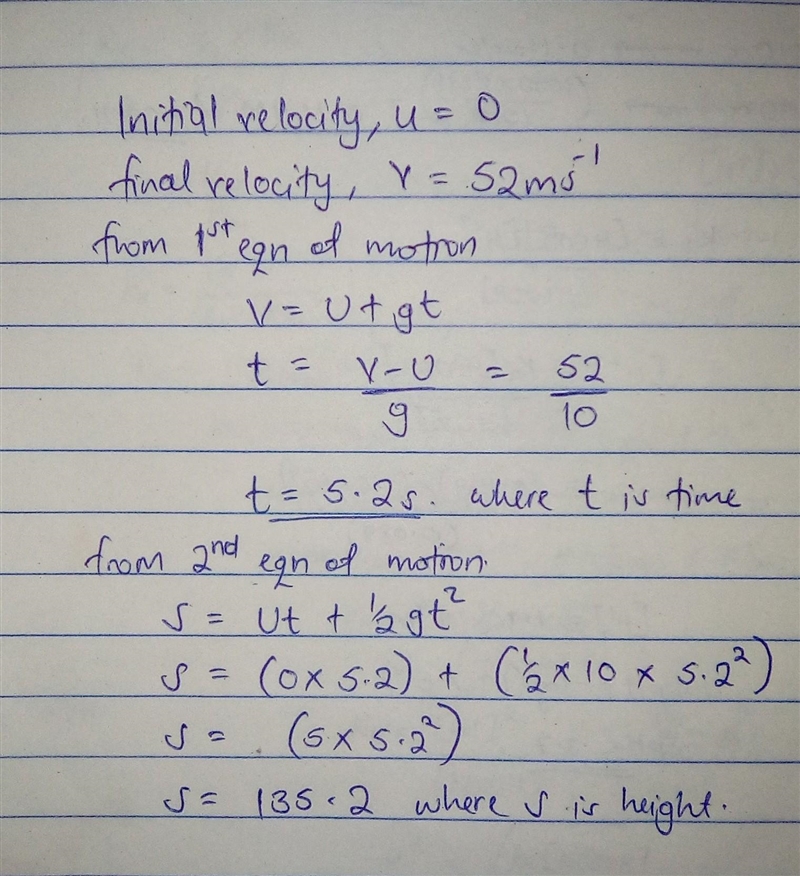 Initial velocity, u = 0
final velocity, v = 52ms⁻¹
from 1st eqn of motion
v = u + gt
t = v-u/g = 52/10
t = 5.2s. where t is time
from 2nd eqn of motion.
s = ut + ½gt²
s = (0 x 5.2) + (½ x 10 x 5.2²)
s = (5 x 5.2²)
s = 135.2 where s is height.